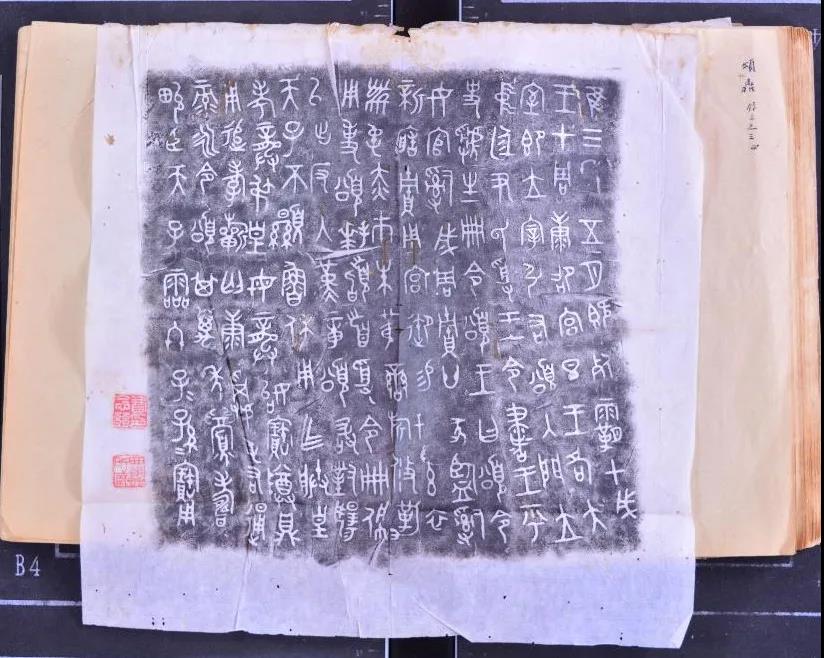 頌鼎
隹三年五月既死霸甲戌
王才周康卲宮旦王各大
室即立宰引右頌入門立
中廷尹氏受王令書王乎
史虢生冊令頌王曰頌令
女官𤔲成周賈廿家監𤔲
新造賈用宮御易女玄衣
黹屯赤巿朱黃䜌旂攸勒
用事頌拜稽首受令冊佩
以出反入堇章頌敢對揚
天子不顯魯休用乍朕皇
考龏弔皇母龏始寶尊鼎
用追孝𣄨匄康𠭯屯右通
彔永令頌其萬年眉壽
畍臣天子霝冬子子孫孫寶用
B4